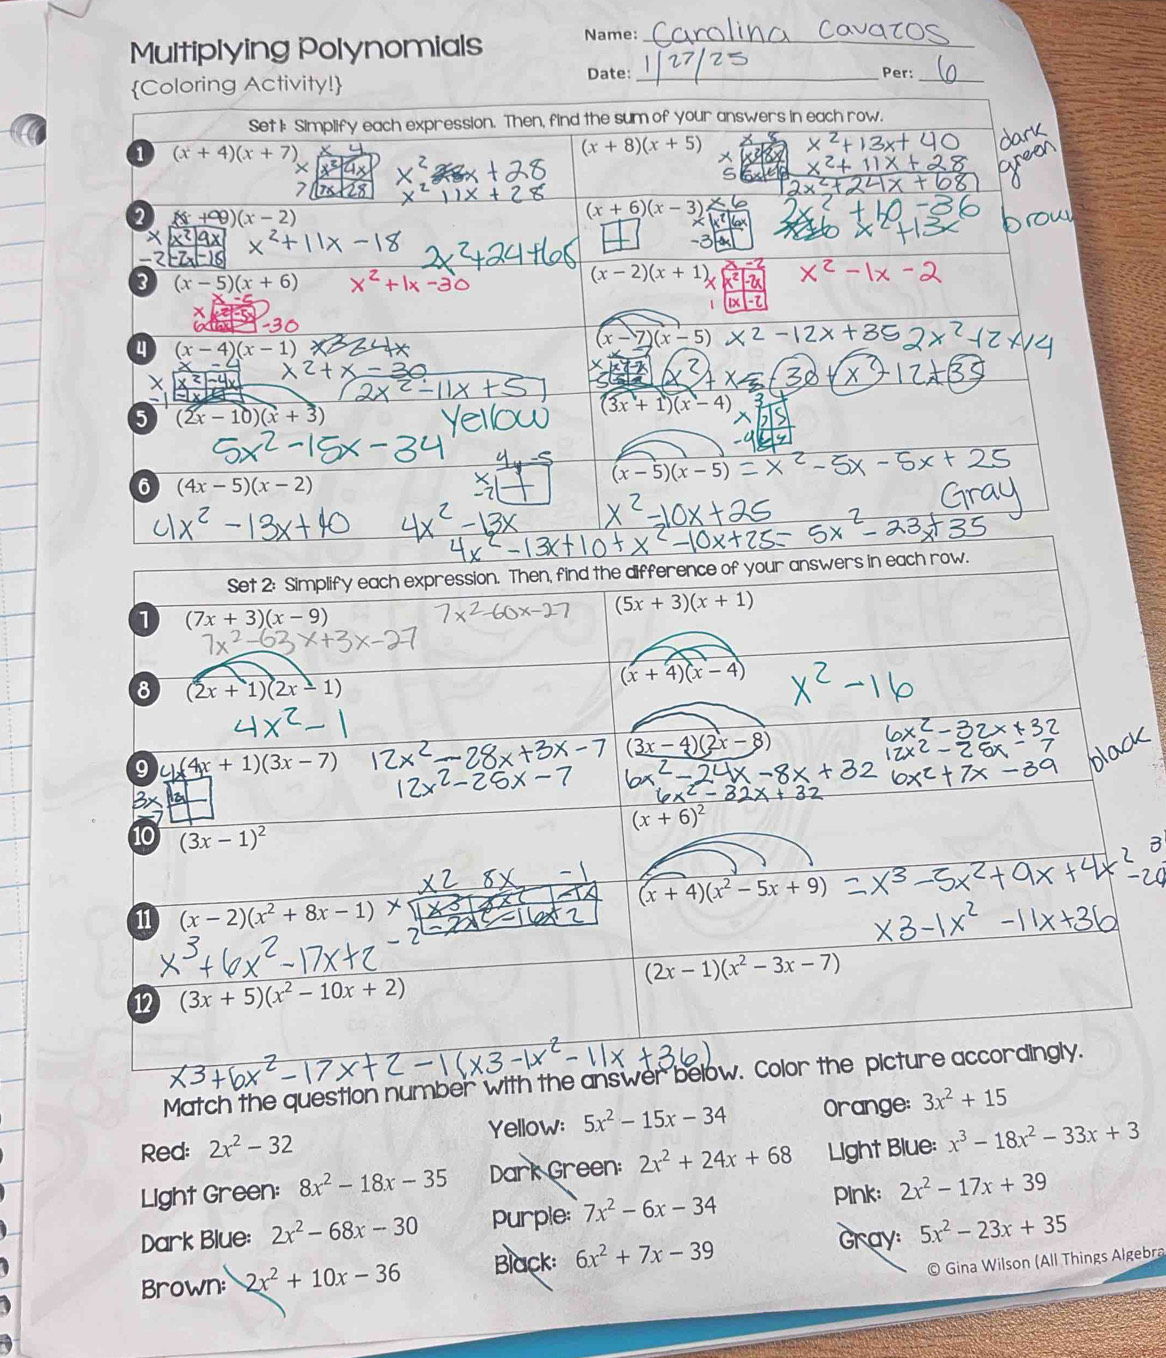 Multiplying Polynomials
{Coloring Activity!}
Name: Carolina Cavazos
Date: 1/27/25 Per: 6
Set 1: Simplify each expression. Then, find the sum of your answers in each row.
1 (x + 4)(x + 7)
x² + 28
x² 11x + 28
(x + 8)(x + 5)
x²+13x+40
x²+ 11x + 28
2x²+24x + 68
dark
green
2 (x + 9)(x − 2)
x²+11x-18
2x²+24+68
(x + 6)(x − 3)
2x² + 10 -36
x²+13x
brown
3 (x − 5)(x + 6)
x²+1x-30
-30
(x − 2)(x + 1)
x²-1x-2
4 (x − 4)(x − 1)
x²+x-30
2x²-11x+5
(x − 7)(x − 5)
x²-12x+35
5 (2x − 10)(x + 3)
yellow
5x²-15x-34
(3x + 1)(x − 4)
6 (4x − 5)(x − 2)
4x²-13x+10
4x²-13x
(x − 5)(x − 5) = x²-5x-5x+25
x²-10x+25
Gray
4x²-13x+10+x²-10x+25= 5x²-23x+35
Set 2: Simplify each expression. Then, find the difference of your answers in each row.
7 (7x + 3)(x − 9)
7x²-60x-27
7x²-63x+3x-27
(5x + 3)(x + 1)
8 (2x + 1)(2x − 1)
4x²-1
(x + 4)(x − 4)
x²-16
9 (4x + 1)(3x − 7)
12x²-28x+3x-7
12x²-25x-7
(3x − 4)(2x − 8)
6x²-24x-8x+32
6x²-32x+32
6x²-32x+32
12x²-25x-7
6x²+7x-39
black
10 (3x − 1)²
(x + 6)²
11 (x − 2)(x² + 8x − 1)
x2 8x -1
x³+6x²-17x+2
(x + 4)(x² − 5x + 9) = x³-5x²+9x+4x²
x3-1x²-11x+36
12 (3x + 5)(x² − 10x + 2)
(2x − 1)(x² − 3x − 7)
x3+6x²-17x+2-1(x3-1x²-11x+36)
Match the question number with the answer below. Color the picture accordingly.
Red: 2x² − 32
Yellow: 5x² − 15x − 34
Orange: 3x² + 15
Light Green: 8x² − 18x − 35
Dark Green: 2x² + 24x + 68
Light Blue: x³ − 18x² − 33x + 3
Dark Blue: 2x² − 68x − 30
Purple: 7x² − 6x − 34
Pink: 2x² − 17x + 39
Brown: 2x² + 10x − 36
Black: 6x² + 7x − 39
Gray: 5x² − 23x + 35
© Gina Wilson (All Things Algebra